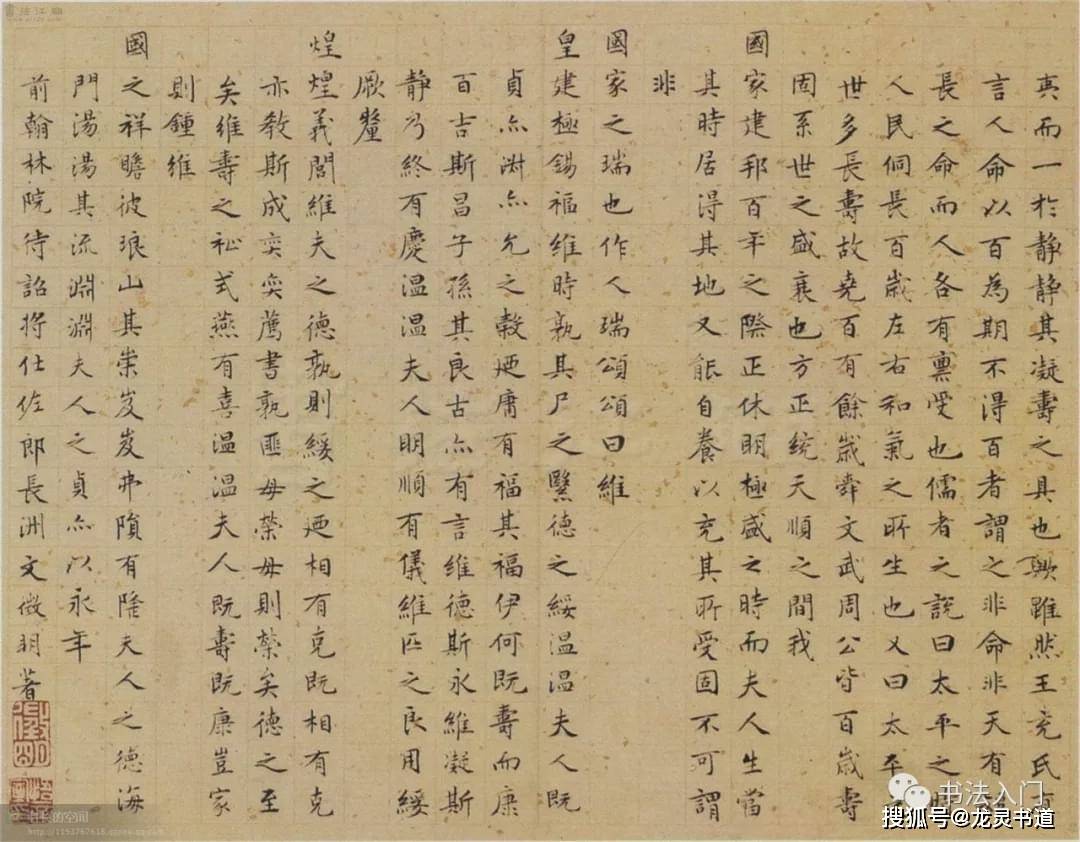 真而一於静静其凝壽之具也歟雖然王充氏有
言人命以百為期不得百者謂之非命非天有
長之命而人各有禀受也儒者之說曰太平之時
人民侗長百歲左右和氣之所生也又曰太平之
世多長壽故堯百有餘歲舜文武周公皆百歲壽
固系世之盛衰也方正統天順之間我
國家建邦百年之際正休明極盛之時而夫人生當
其時居得其地又能自養以充其所受固不可謂
非
國家之瑞也作人瑞頌頌曰維
皇建極錫福維時孰其尸之繄德之綏温温夫人既
貞亦淑亦允之穀迺庸有福其福伊何既壽而康
百吉斯昌子孫其良古亦有言維德斯永維凝斯
静乃終有慶温温夫人明順有儀維匹之良用綏
厥釐
煌煌義問維夫之德孰則綏之迺相有克既相有克
亦教斯成奕奕薦書孰匪母榮母則榮矣德之至
矣維壽之祉式燕有喜温温夫人既壽既康豈家
則鍾維
國之祥瞻彼琅山其崇岌岌弗隕有隆夫人之德海
門湯湯其流淵淵夫人之貞亦以永年
前翰林院待詔将仕佐郎長洲文徵明著
徵明
书法入门
搜狐号@龙灵书道